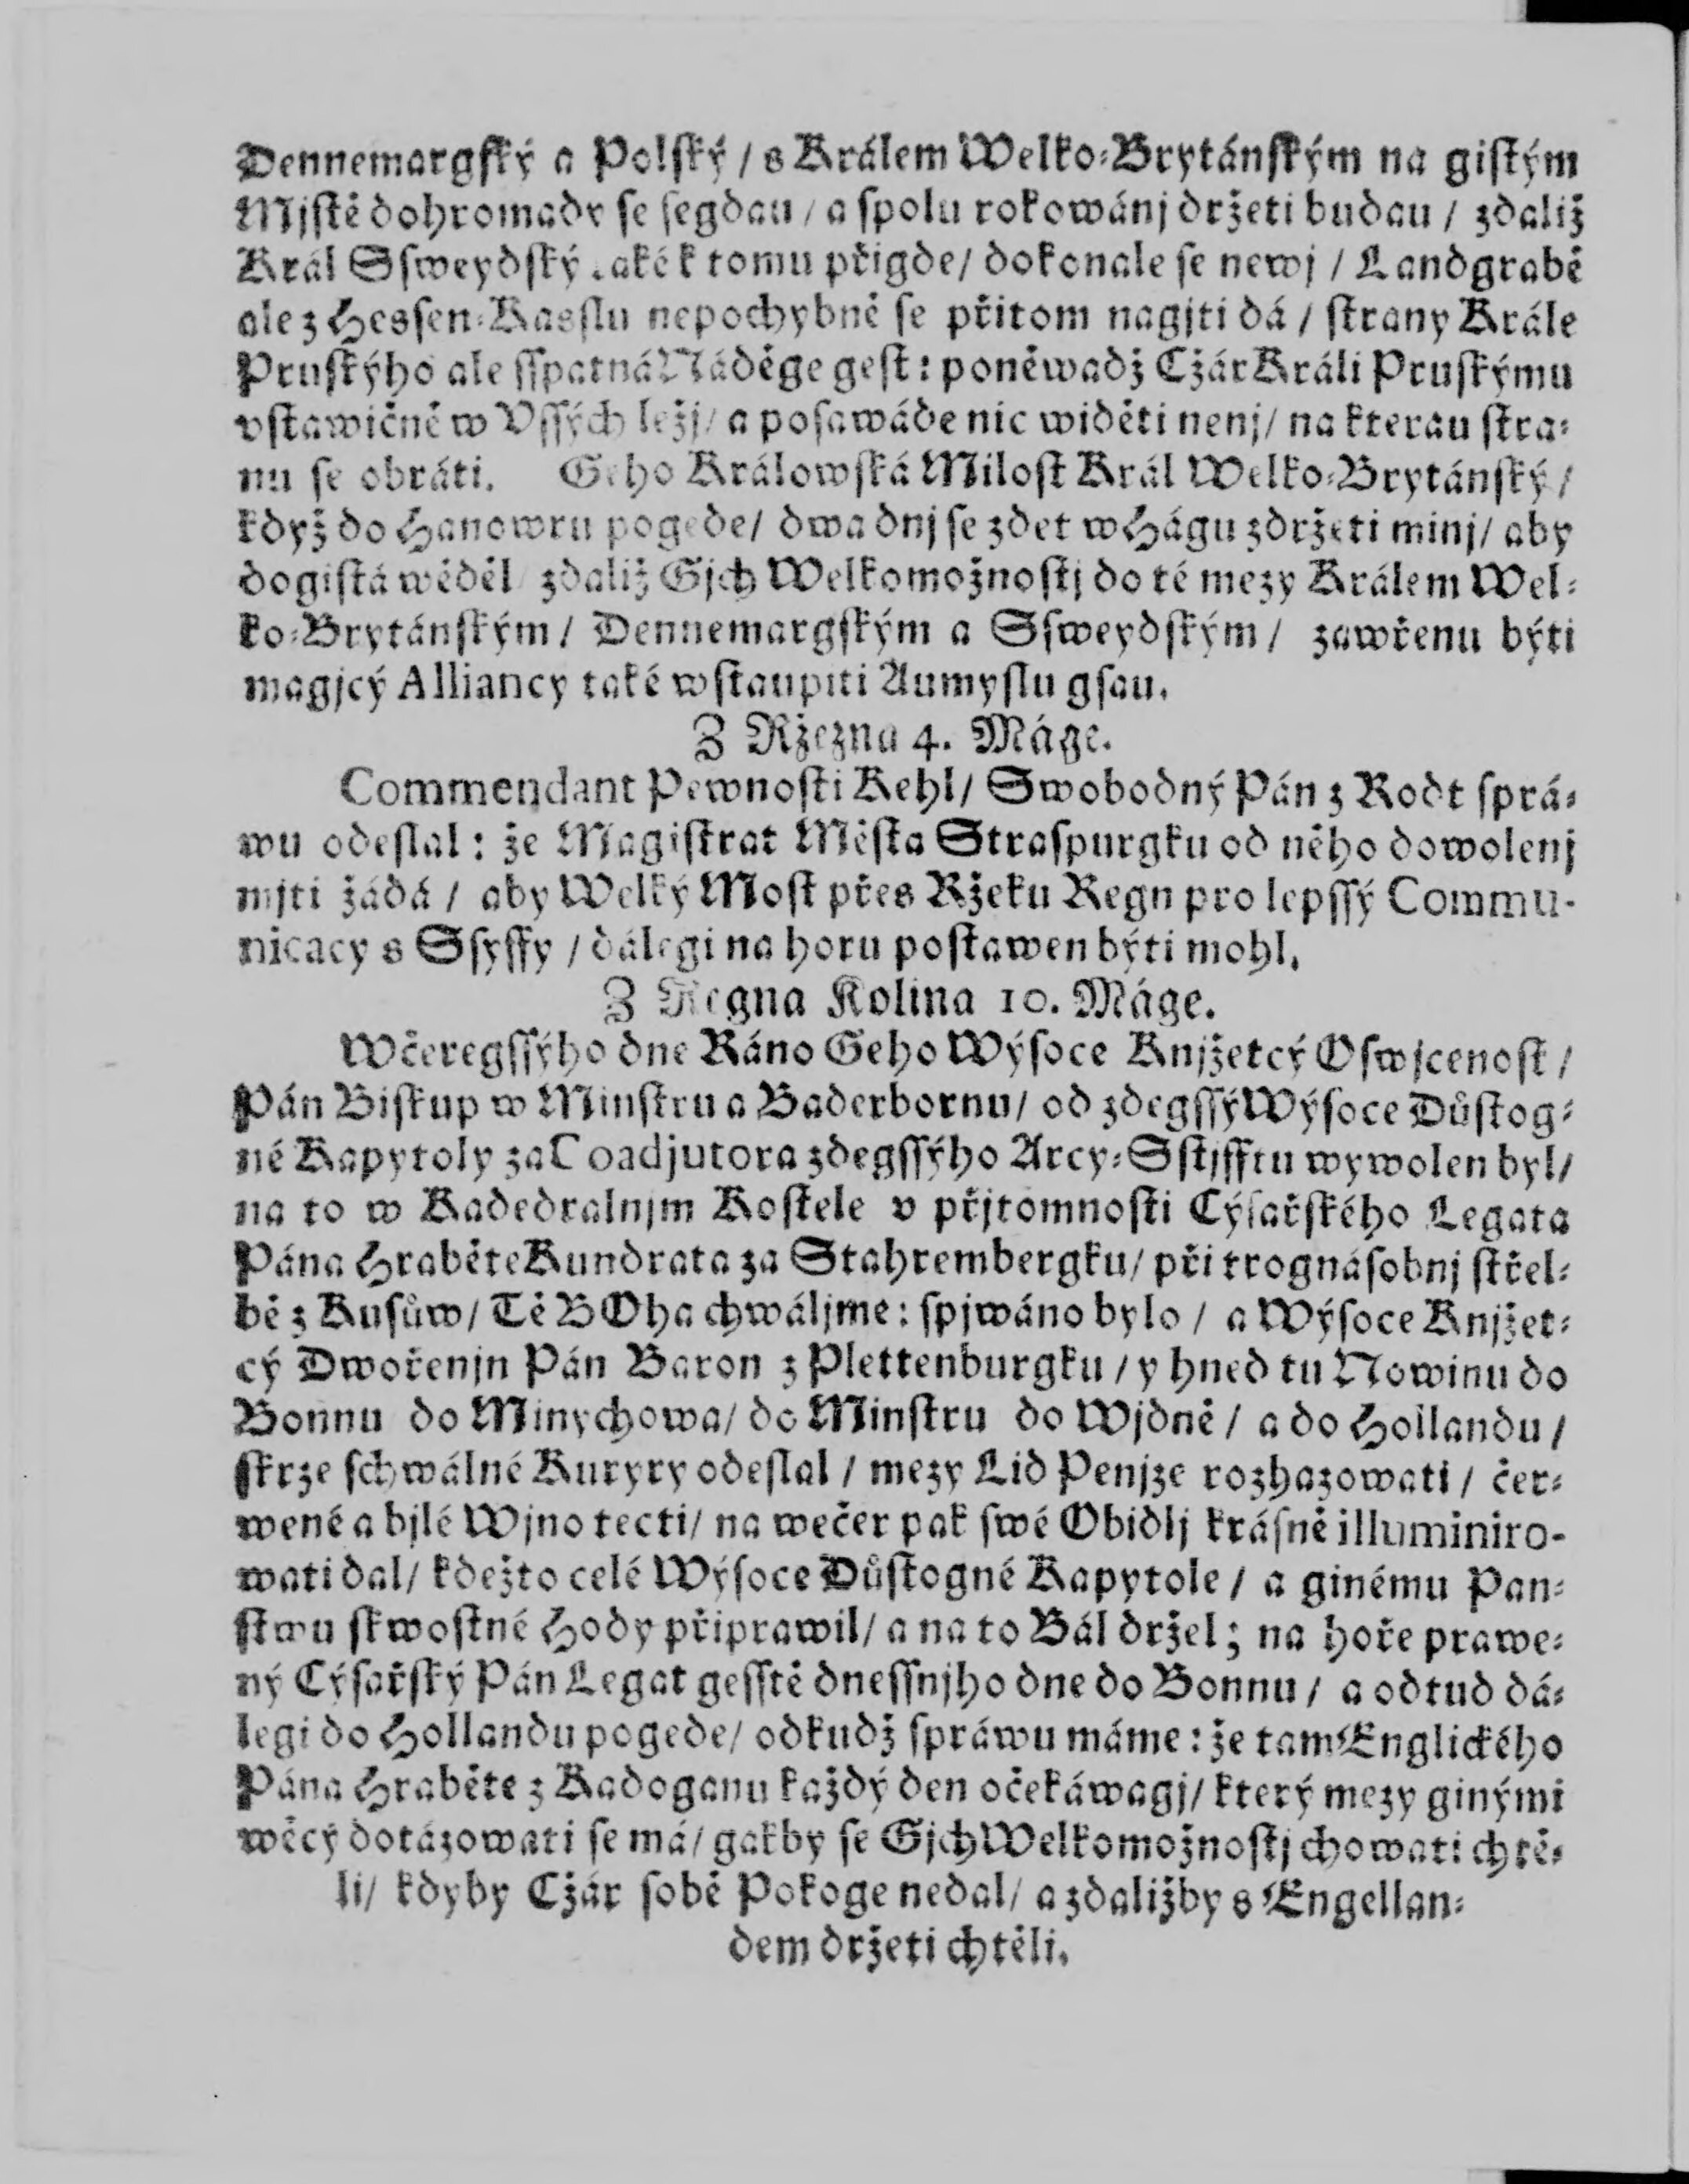 Dennemargſký a Polſký / s Králem Welko-Brytánſkým na giſtým
Mjſtě dohromady ſe ſegdau / a ſpolu rokowánj držeti budau / zdaliž
Král Sſweydſký také k tomu přigde / dokonale ſe newj / Landgrabě
ale z Hesſen-Kasſlu nepochybně ſe přitom nagjti dá / ſtrany Krále
Pruſkýho ale ſſpatná Náděge geſt: poněwadž Cžár Králi Pruſkýmu
vſtawičně w Vſſých ležj / a poſawáde nic widěti nenj / na kterau ſtra-
nu ſe obráti. Geho Králowſká Miloſt Král Welko-Brytánſký /
když do Hanowru pogede / dwa dnj ſe zdet w Hágu zdržeti minj / aby
dogiſtá wěděl / zdaliž Gjch Welkomožnoſtj do té mezy Králem Wel-
ko-Brytánſkým / Dennemargſkým a Sſweydſkým / zawřenu býti
magjcý Alliancy také wſtaupiti Aumyſlu gſau.
Z Ržezna 4. Máge.
Commendant Pewnoſti Kehl / Swobodný Pán z Rodt ſprá-
wu odeſlal: že Magiſtrat Měſta Straſpurgku od něho dowolenj
mjti žádá / aby Welký Moſt přes Ržeku Regn pro lepſſý Commu-
nicacy s Sſyffy / dálegi na horu poſtawen býti mohl.
Z Regna Kolina 10. Máge.
Wčeregſſýho dne Ráno Geho Wýſoce Knjžetcý Oſwjcenoſt /
Pán Biſkup w Minſtru a Baderbornu / od zdegſſý Wýſoce Důſtog-
né Kapytoly za Coadjutora zdegſſýho Arcy-Sſtjfftu wywolen byl /
na to w Kadedralnjm Koſtele v přjtomnoſti Cýſařſkého Legata
Pána Hraběte Kundrata za Stahrembergku / při trognáſobnj ſtřel-
bě z Kuſůw / Tě BOha chwáljme: ſpjwáno bylo / a Wýſoce Knjžet-
cý Dwořenjn Pán Baron z Plettenburgku / y hned tu Nowinu do
Bonnu do Minychowa / do Minſtru do Wjdně / a do Hollandu /
ſkrze ſchwálné Kuryry odeſlal / mezy Lid Penjze rozhazowati / čer-
wené a bjlé Wjno tecti / na wečer pak ſwé Obidlj kráſně illuminiro-
wati dal / kdežto celé Wýſoce Důſtogné Kapytole / a ginému Pan-
ſtwu ſkwoſtné Hody připrawil / a na to Bál držel; na hoře prawe-
ný Cýſařſký Pán Legat gesſtě dnesſnjho dne do Bonnu / a odtud dá-
legi do Hollandu pogede / odkudž ſpráwu máme: že tam Englického
Pána Hraběte z Kadoganu každý den očekáwagj / který mezy ginými
wěcý dotázowati ſe má / gakby ſe Gjch Welkomožnoſtj chowati chtě-
li / kdyby Cžár ſobě Pokoge nedal / a zdaližby s Engellan-
dem držeti chtěli.